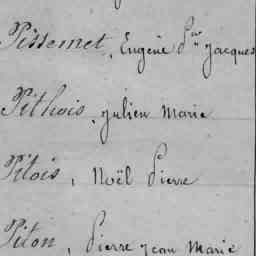 Pissemet, Eugène Jacques
Pithois, Julien Marie
Pitois, Noël Pierre
Piton, Pierre Jean Marie